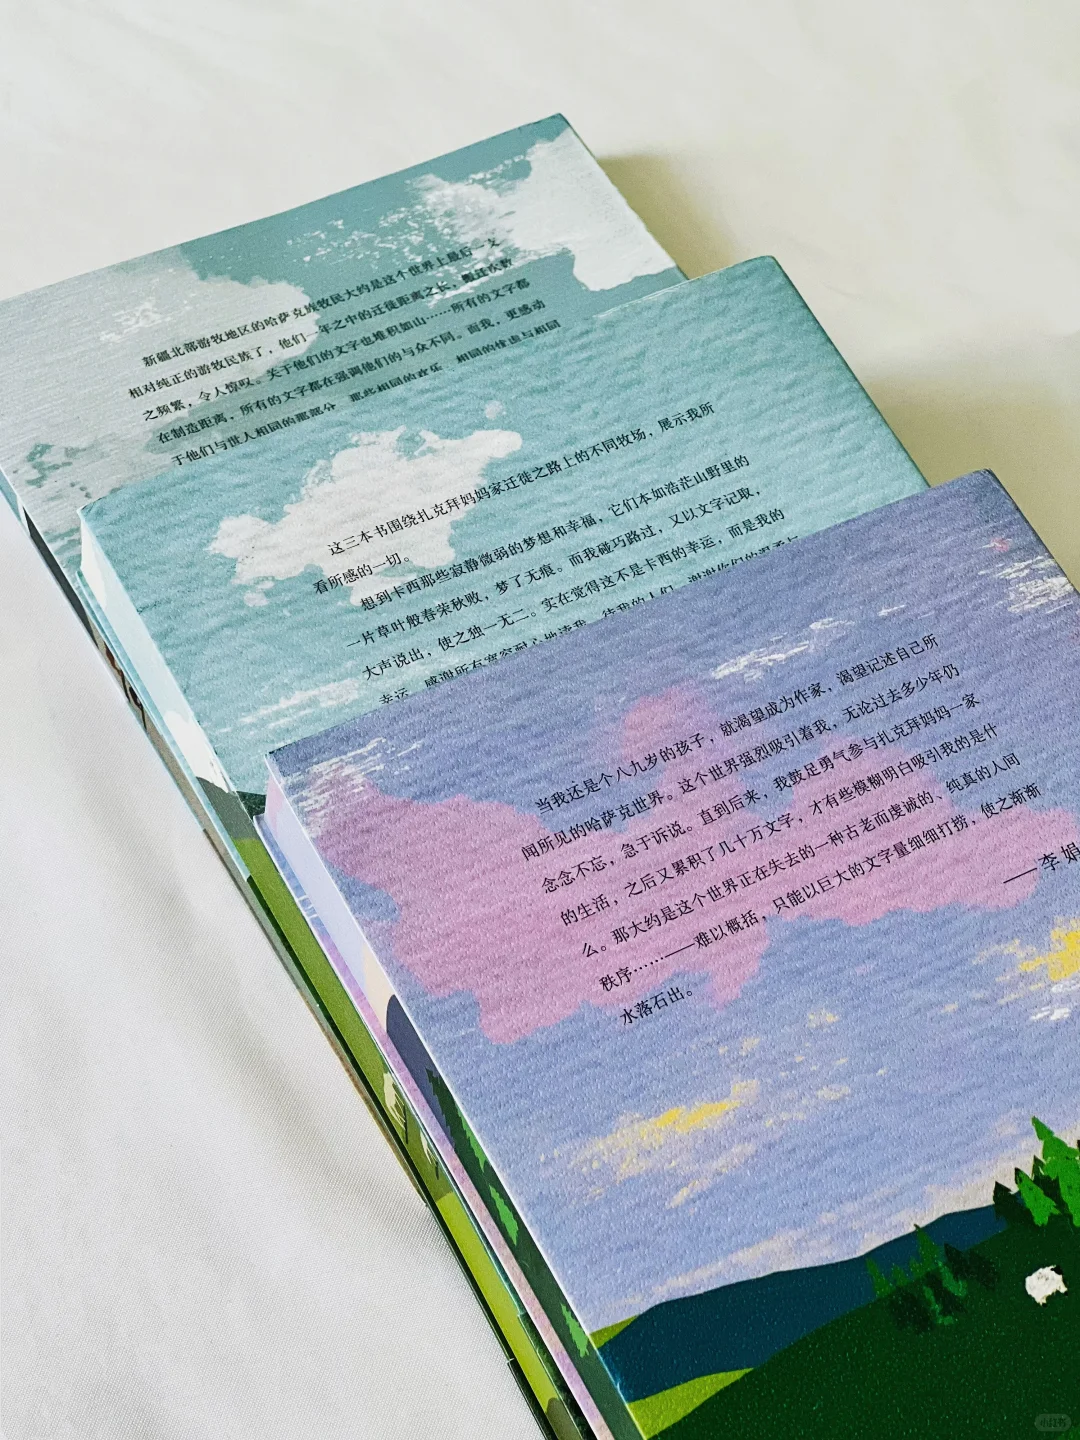 新疆北部游牧地区的哈萨克族牧民大约是这个世界上最后一支
相对纯正的游牧民族了，他们一年之中的迁徙距离之长，搬迁次数
之频繁，令人惊叹。关于他们的文字也堆积如山……所有的文字都
在制造距离，所有的文字都在强调他们的与众不同。而我，更感动
于他们与世人相同的那部分，那些相同的欢乐、相同的忧虑与相同
这三本书围绕扎克拜妈妈家迁徙之路上的不同牧场，展示我所
看所感的一切。
想到卡西那些寂静微弱的梦想和幸福，它们本如浩茫山野里的
一片草叶般春荣秋败，梦了无痕。而我碰巧路过，又以文字记取，
大声说出，使之独一无二。实在觉得这不是卡西的幸运，而是我的
幸运。感谢所有宽容耐心地读我、待我的人们，谢谢你们的温柔与
当我还是个八九岁的孩子，就渴望成为作家，渴望记述自己所
闻所见的哈萨克世界。这个世界强烈吸引着我，无论过去多少年仍
念念不忘，急于诉说。直到后来，我鼓足勇气参与扎克拜妈妈一家
的生活，之后又累积了几十万文字，才有些模糊明白吸引我的是什
么。那大约是这个世界正在失去的一种古老而虔诚的、纯真的人间
秩序……——难以概括，只能以巨大的文字量细细打捞，使之渐渐
水落石出。
——李娟
小红书